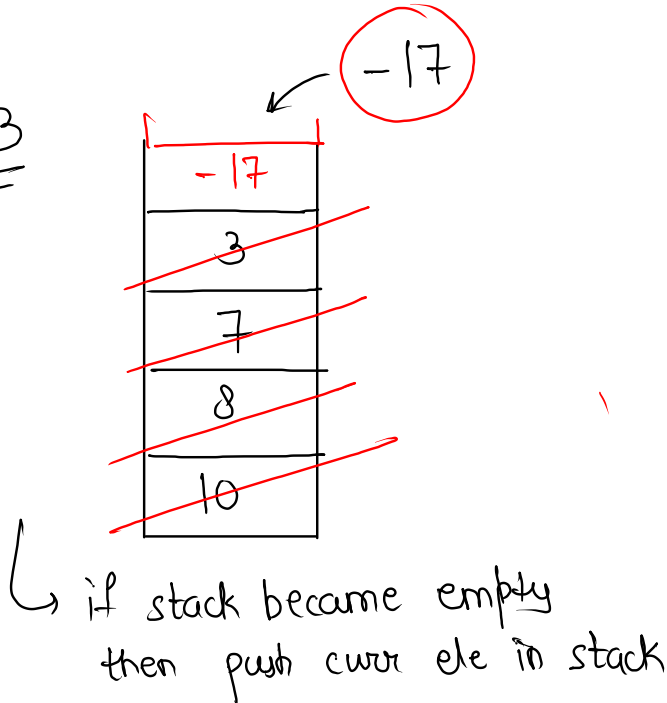 -17
3
-17
3
7
8
10
if stack became empty
then push curr ele in stack